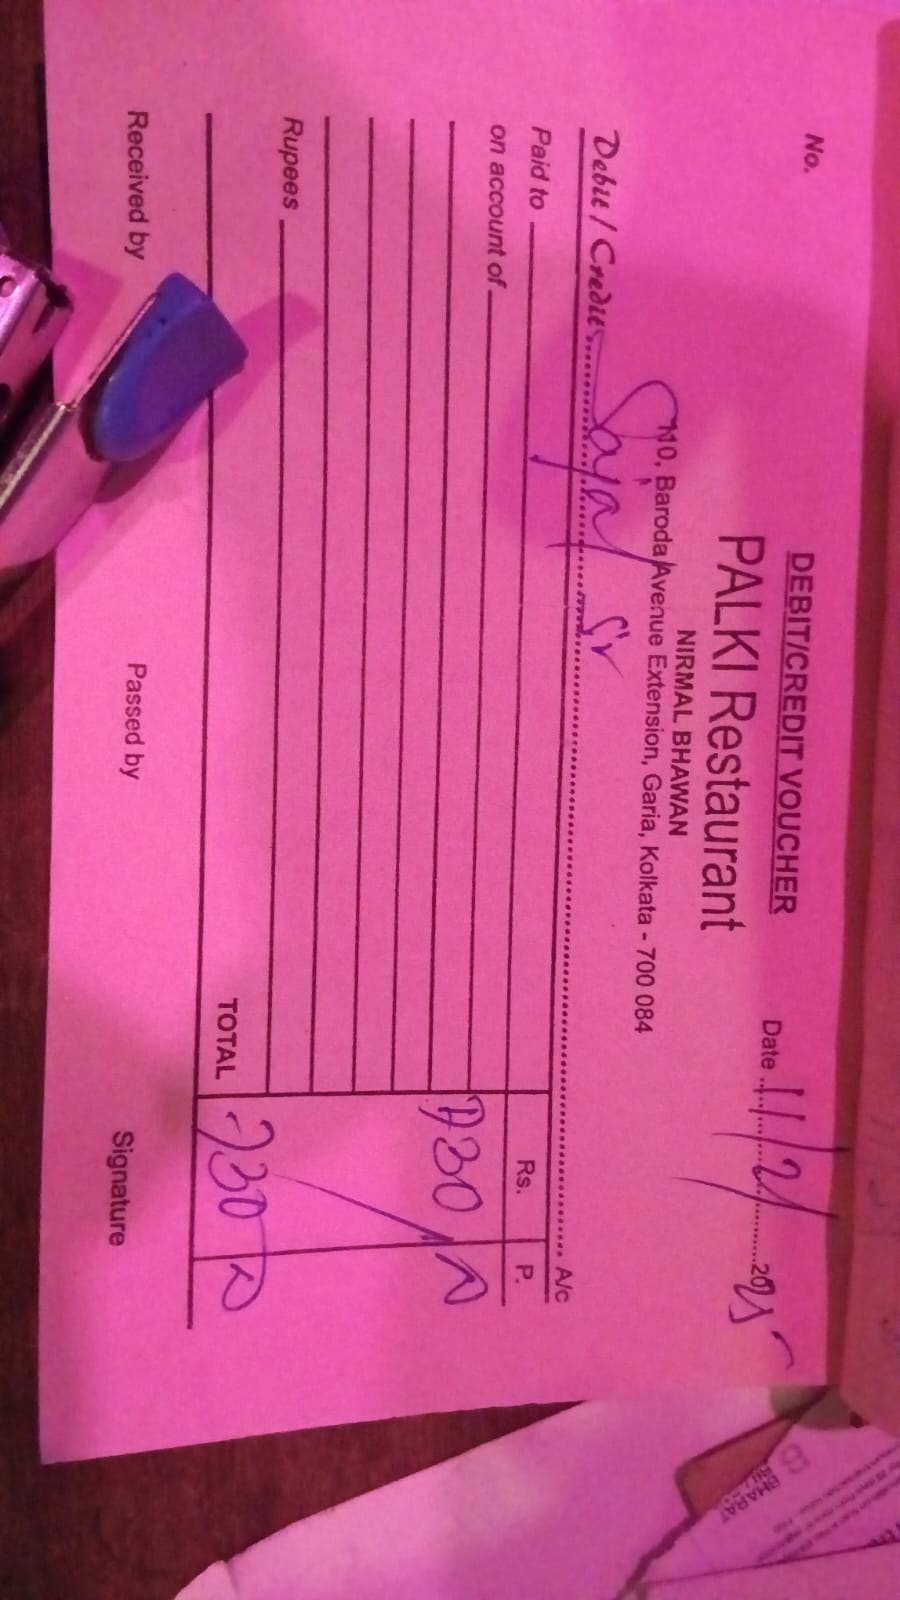 No.
DEBIT/CREDIT VOUCHER
Date 11/2/2025
PALKI Restaurant
NIRMAL BHAWAN
110, Baroda Avenue Extension, Garia, Kolkata - 700 084
Debit / Credit Sajal Sir A/c
Paid to
Rs. P.
on account of
730/-
Rupees
TOTAL 730
Received by Passed by Signature
BHARAT